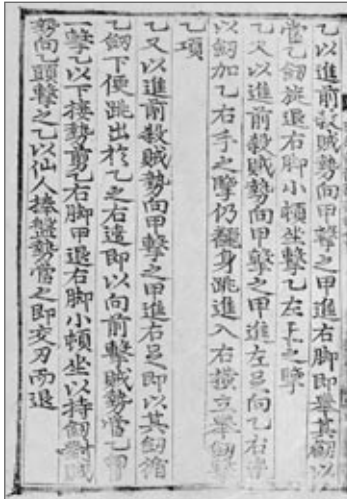 乙以進前殺賊勢向甲擊之甲進右脚即舉其劒以
當乙劒旋退右脚小頓坐擊乙左手之擘
乙又以進前殺賊勢向甲擊之甲進左足向乙右旁
以劒加乙右手之擘仍翻身跳進入右橫立舉劒擊
乙項
乙又以進前殺賊勢向甲擊之甲進右足即以其劒循
乙劒下便跳出於乙之右邊即以向前擊賊勢當乙
一擊乙以下接勢剪乙右脚甲退右脚小頓坐以持劒對賊
勢向乙頭擊之乙以仙人捧盤勢當之即交刀而退